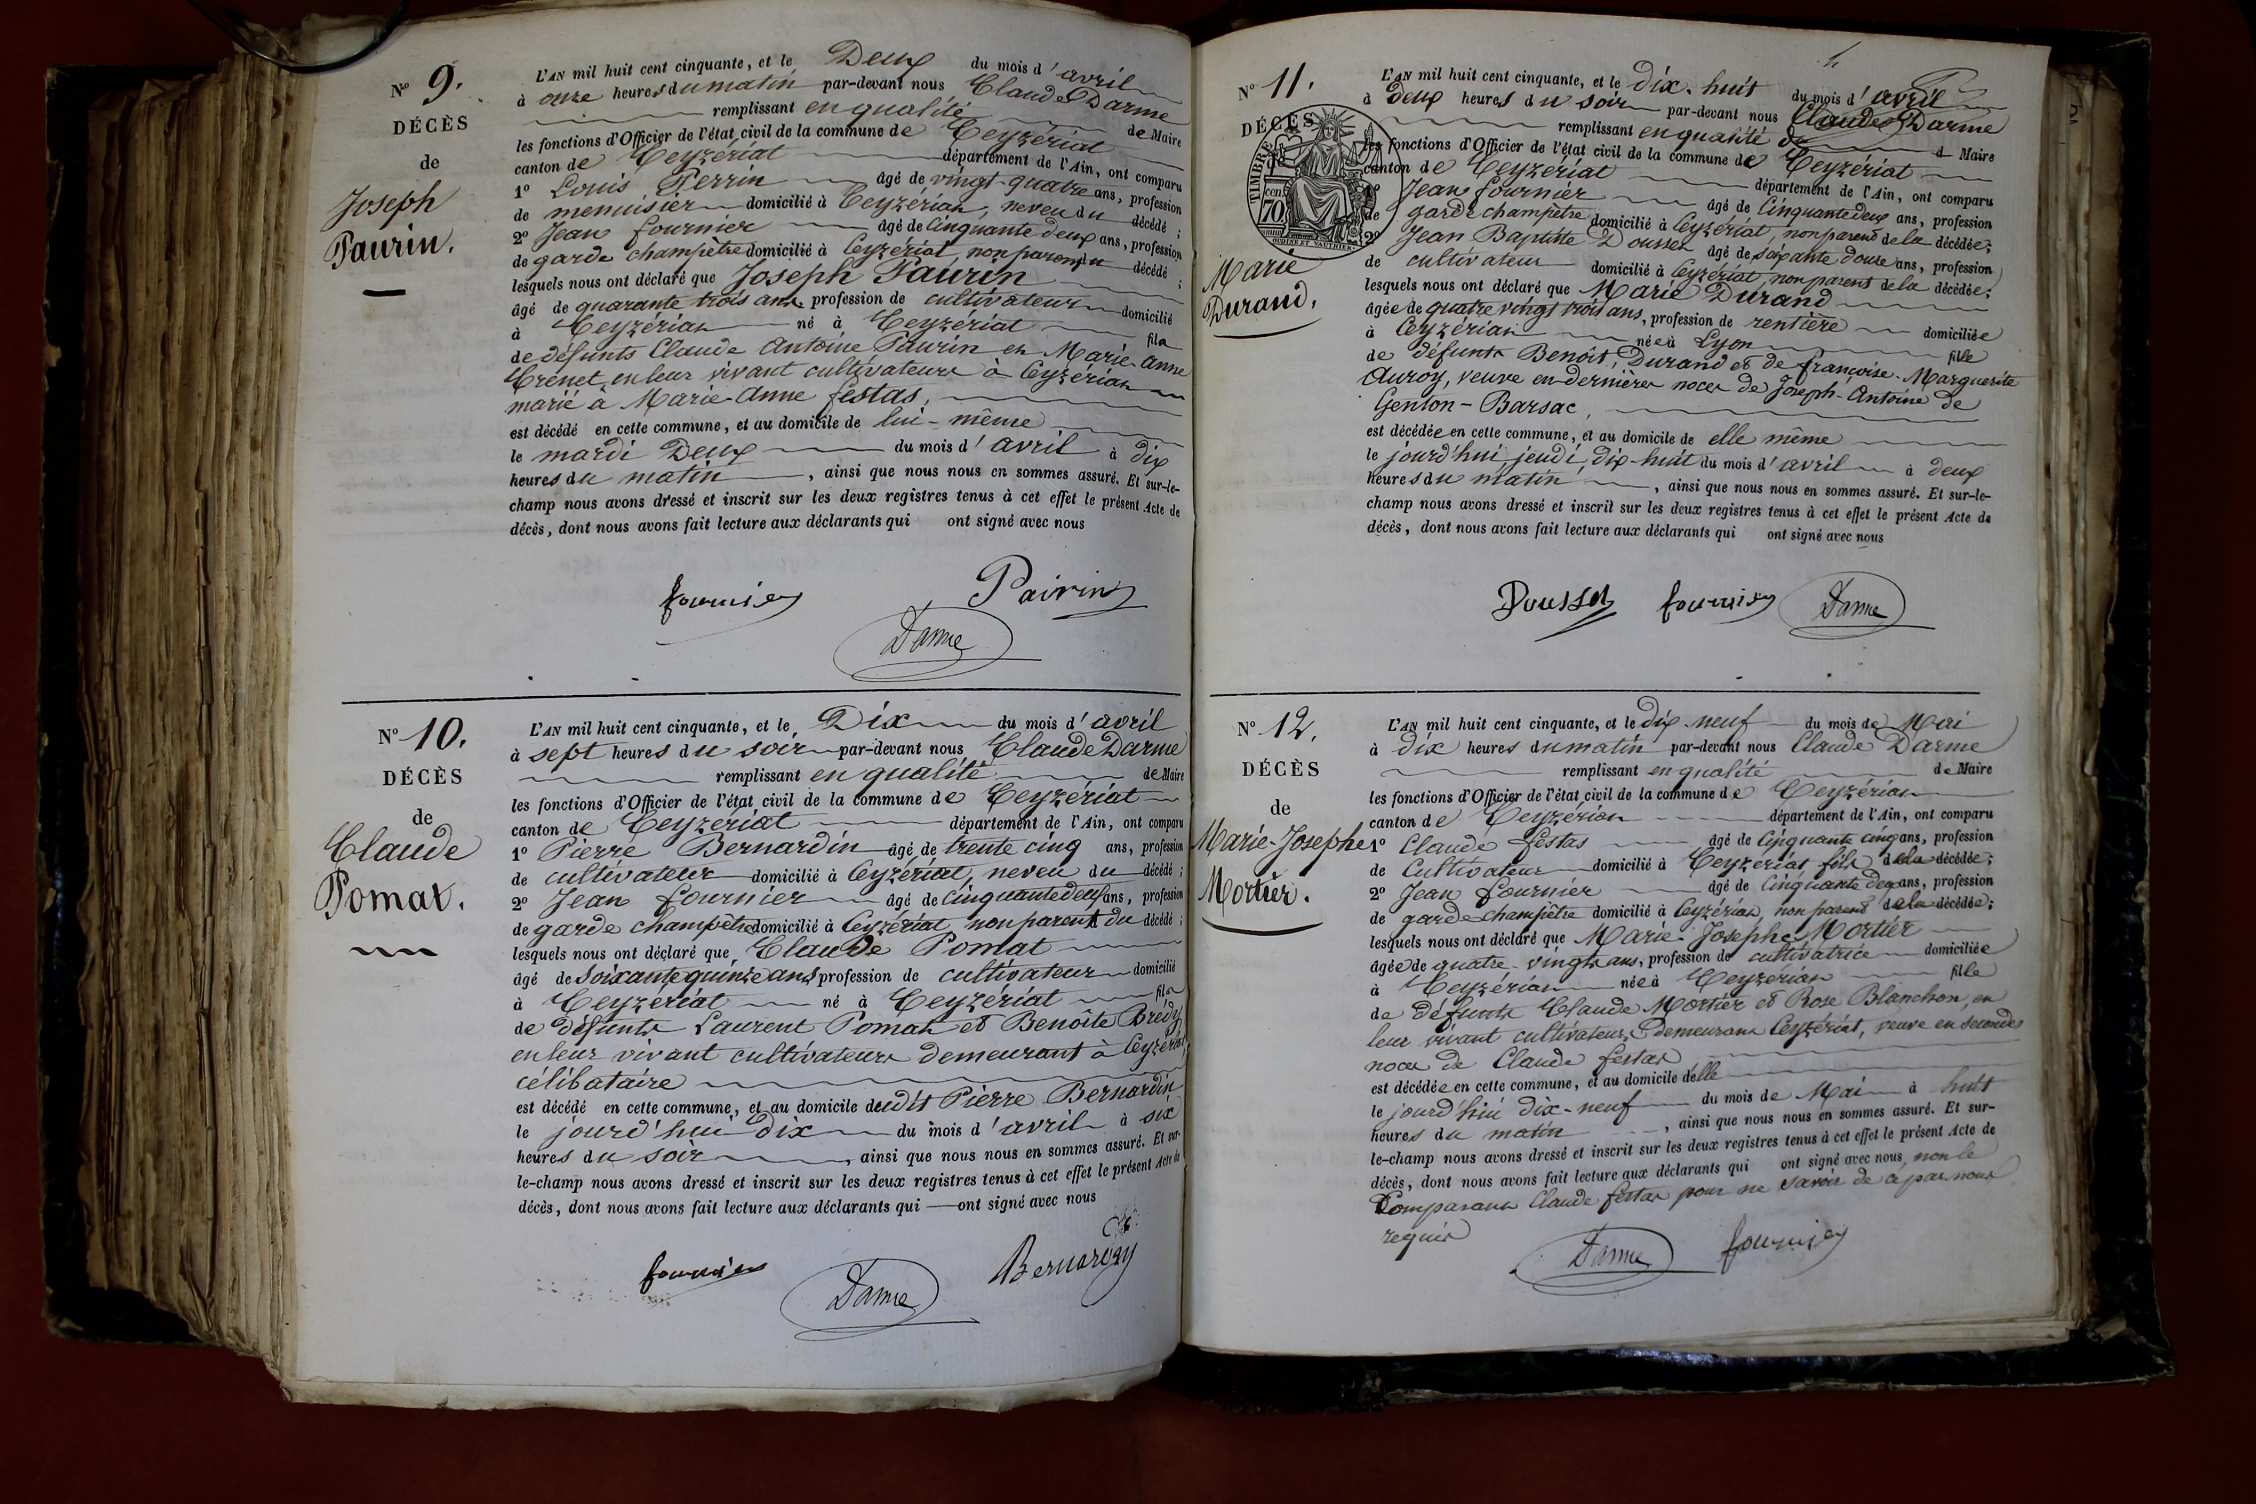 N° 9.
DÉCÈS
de
Joseph
Paurin.
L'AN mil huit cent cinquante, et le Deux du mois d'avril
à onze heures du matin par-devant nous Claude Darme
remplissant en qualité de Maire
les fonctions d'Officier de l'état civil de la commune de Ceyzériat
canton de Ceyzériat département de l'Ain, ont comparu
1° Louis Perrin âgé de vingt-quatre ans, profession
de menuisier domicilié à Ceyzériat, neveu du décédé ;
2° Jean fournier âgé de Cinquante deux ans, profession
de garde champêtre domicilié à Ceyzériat, non parent du décédé ;
lesquels nous ont déclaré que Joseph Paurin
âgé de quarante trois ans, profession de cultivateur domicilié
à Ceyzériat né à Ceyzériat fils
de défunts Claude Antoine Paurin et Marie-Anne
Crénet, en leur vivant cultivateurs à Ceyzériat
marié à Marie-Anne festas,
est décédé en cette commune, et au domicile de lui-même
le mardi Deux du mois d'avril à dix
heures du matin, ainsi que nous nous en sommes assuré. Et sur-le-
champ nous avons dressé et inscrit sur les deux registres tenus à cet effet le présent Acte de
décès, dont nous avons fait lecture aux déclarants qui ont signé avec nous
fournier
Darme
N° 10.
DÉCÈS
de
Claude
Pomat.
L'AN mil huit cent cinquante, et le Dix du mois d'avril
à sept heures du soir par-devant nous Claude Darme
remplissant en qualité de Maire
les fonctions d'Officier de l'état civil de la commune de Ceyzériat
canton de Ceyzériat département de l'Ain, ont comparu
1° Pierre Bernardin âgé de trente cinq ans, profession
de cultivateur domicilié à Ceyzériat, neveu du décédé ;
2° Jean fournier âgé de cinquante deux ans, profession
de garde champêtre domicilié à Ceyzériat, non parent du décédé ;
lesquels nous ont déclaré que Claude Pomat
âgé de soixante quinze ans, profession de cultivateur domicilié
à Ceyzériat né à Ceyzériat fils
de défunts Laurent Pomat et Benoîte Brédy
en leur vivant cultivateurs demeurant à Ceyzériat
célibataire
est décédé en cette commune, et au domicile dudit Pierre Bernardin
le jourd'hui dix du mois d'avril à six
heures du soir, ainsi que nous nous en sommes assuré. Et sur-
le-champ nous avons dressé et inscrit sur les deux registres tenus à cet effet le présent Acte de
décès, dont nous avons fait lecture aux déclarants qui ont signé avec nous
fournier
Darme
N° 11.
DÉCÈS
TIMBRE
cen.
70
Marie
Durand.
L'AN mil huit cent cinquante, et le dix-huit du mois d'avril
à Deux heures du soir par-devant nous Claude Darme
remplissant en qualité de Maire
les fonctions d'Officier de l'état civil de la commune de Ceyzériat
canton de Ceyzériat département de l'Ain, ont comparu
Jean fournier âgé de Cinquante deux ans, profession
de garde champêtre domicilié à Ceyzériat, non parent de la décédée ;
2° Jean Baptiste Dousset âgé de soixante douze ans, profession
de cultivateur domicilié à Ceyzériat, non parent de la décédée ;
lesquels nous ont déclaré que Marie Durand
âgée de quatre vingt trois ans, profession de rentière domiciliée
à Ceyzériat née à Lyon fille
de défunts Benoît Durand et de françoise-Marguerite
Auroy, veuve en dernières noces de Joseph-Antoine de
Genton-Barsac,
est décédée en cette commune, et au domicile de elle même
le jourd'hui jeudi, dix-huit du mois d'avril à deux
heures du matin, ainsi que nous nous en sommes assuré. Et sur-le-
champ nous avons dressé et inscrit sur les deux registres tenus à cet effet le présent Acte de
décès, dont nous avons fait lecture aux déclarants qui ont signé avec nous
Dousset fournier Darme
N° 12.
DÉCÈS
de
Marie-Josephe
Mortier.
L'AN mil huit cent cinquante, et le dix-neuf du mois de Mai
à dix heures du matin par-devant nous Claude Darme
remplissant en qualité de Maire
les fonctions d'Officier de l'état civil de la commune de Ceyzériat
canton de Ceyzériat département de l'Ain, ont comparu
1° Claude festas âgé de Cinquante cinq ans, profession
de Cultivateur domicilié à Ceyzériat fils de la décédée ;
2° Jean fournier âgé de Cinquante deux ans, profession
de garde champêtre domicilié à Ceyzériat, non parent de la décédée ;
lesquels nous ont déclaré que Marie-Josephe Mortier
âgée de quatre-vingts ans, profession de cultivatrice domiciliée
à Ceyzériat née à Ceyzériat fille
de défunts Claude Mortier et Rose Blanchon, en
leur vivant cultivateurs demeurant Ceyzériat, veuve en secondes
noces de Claude festas
est décédée en cette commune, et au domicile d'elle
le jourd'hui dix-neuf du mois de Mai à huit
heures du matin, ainsi que nous nous en sommes assuré. Et sur-
le-champ nous avons dressé et inscrit sur les deux registres tenus à cet effet le présent Acte de
décès, dont nous avons fait lecture aux déclarants qui ont signé avec nous non le
Comparant Claude festas pour ne savoir de ce par nous
requis
Darme fournier